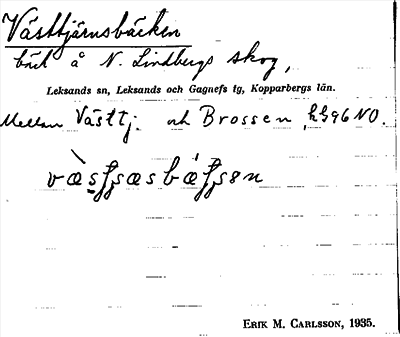 Västtjärnsbäcken
bäck å N. Lindbergs skog,
Leksands sn, Leksands och Gagnefs tg, Kopparbergs län.
Mellan Västtj. och Brossen, hS96 NO.
ERIK M. CARLSSON, 1935.